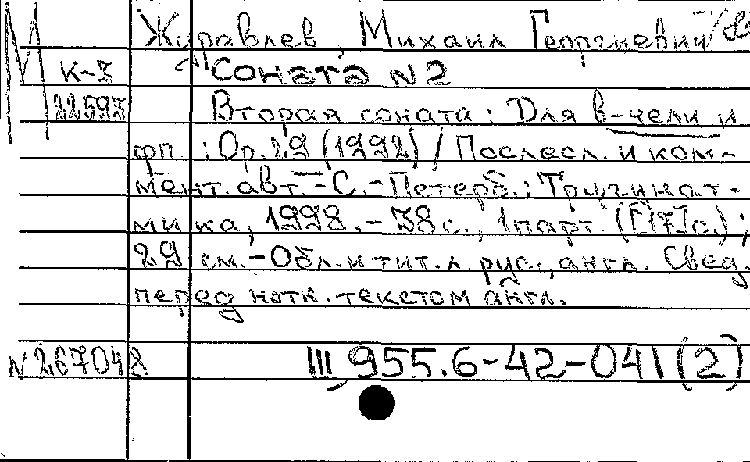 М Журавлев, Михаил Георгиевич
К-3 Соната N 2
22593 Вторая соната: Для в-чели и
фп.: Ор. 29 (1992) / Послесл. и ком-
мент. авт. - С.-Петерб.:
мика, 1998. - 38 с., 1 парт. ([17] с.);
29 см. - Обл. и тит. л. рус., англ. Свед.
перед нотн. текстом англ.
N 267048 III, 955.6-42-041 (2)